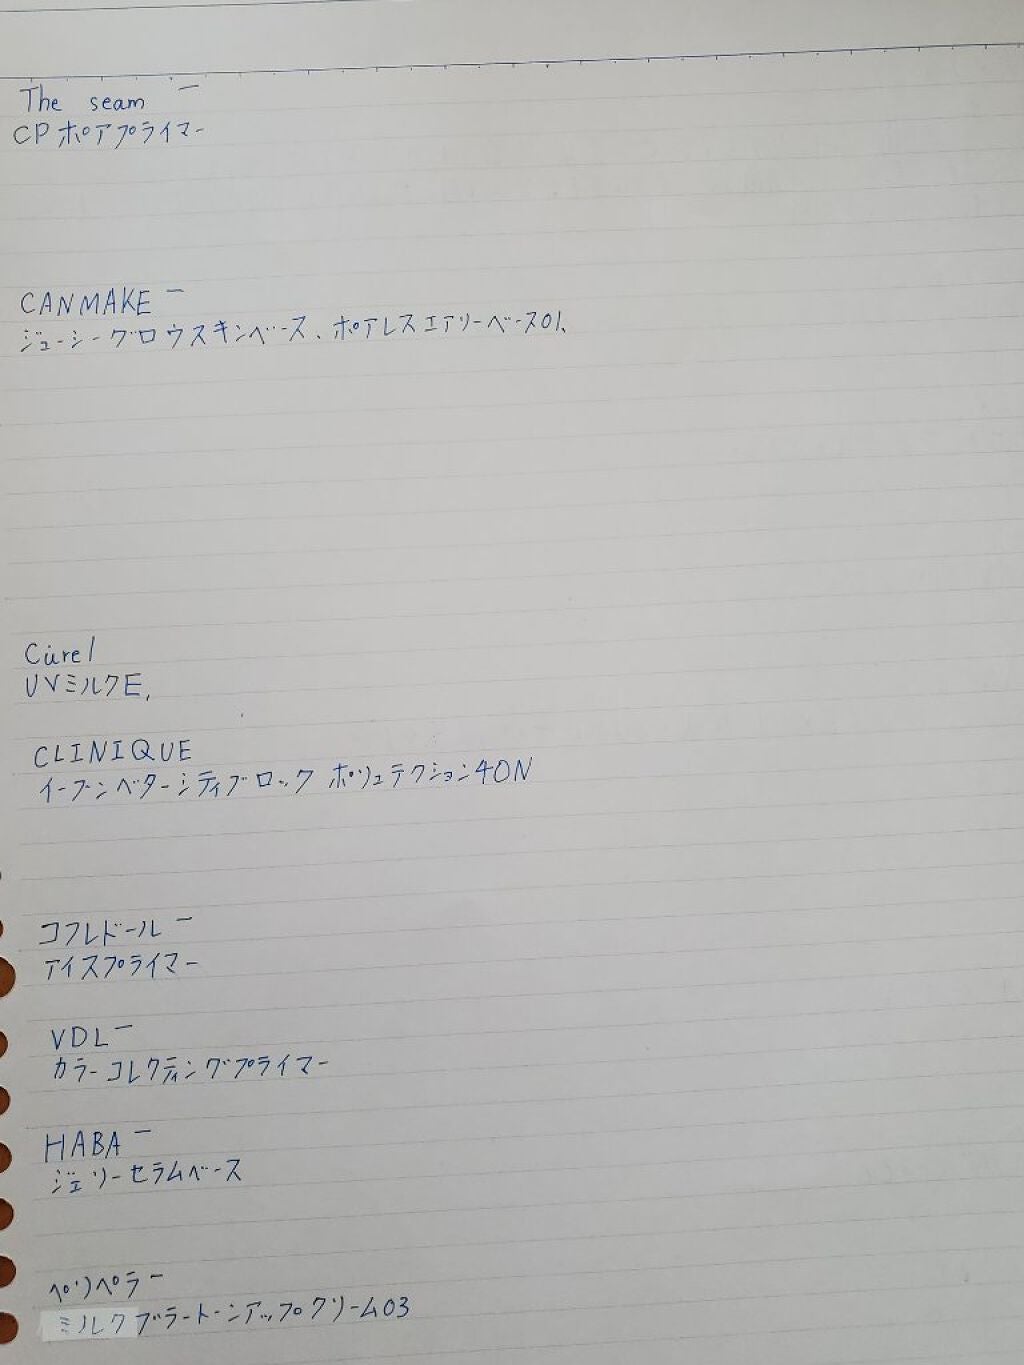 The seam ー
CPポアプライマー
CANMAKE ー
ジューシーグロウスキンベース、ポアレスエアリーベース01、
Curel
UVミルクE、
CLINIQUE
イーブンベターシティブロック ポリュテクション40N
コフレドール ー
アイスプライマー
VDL ー
カラーコレクティングプライマー
HABA ー
ジェリーセラムベース
ペリペラ ー
ミルクブラートーンアップクリーム03